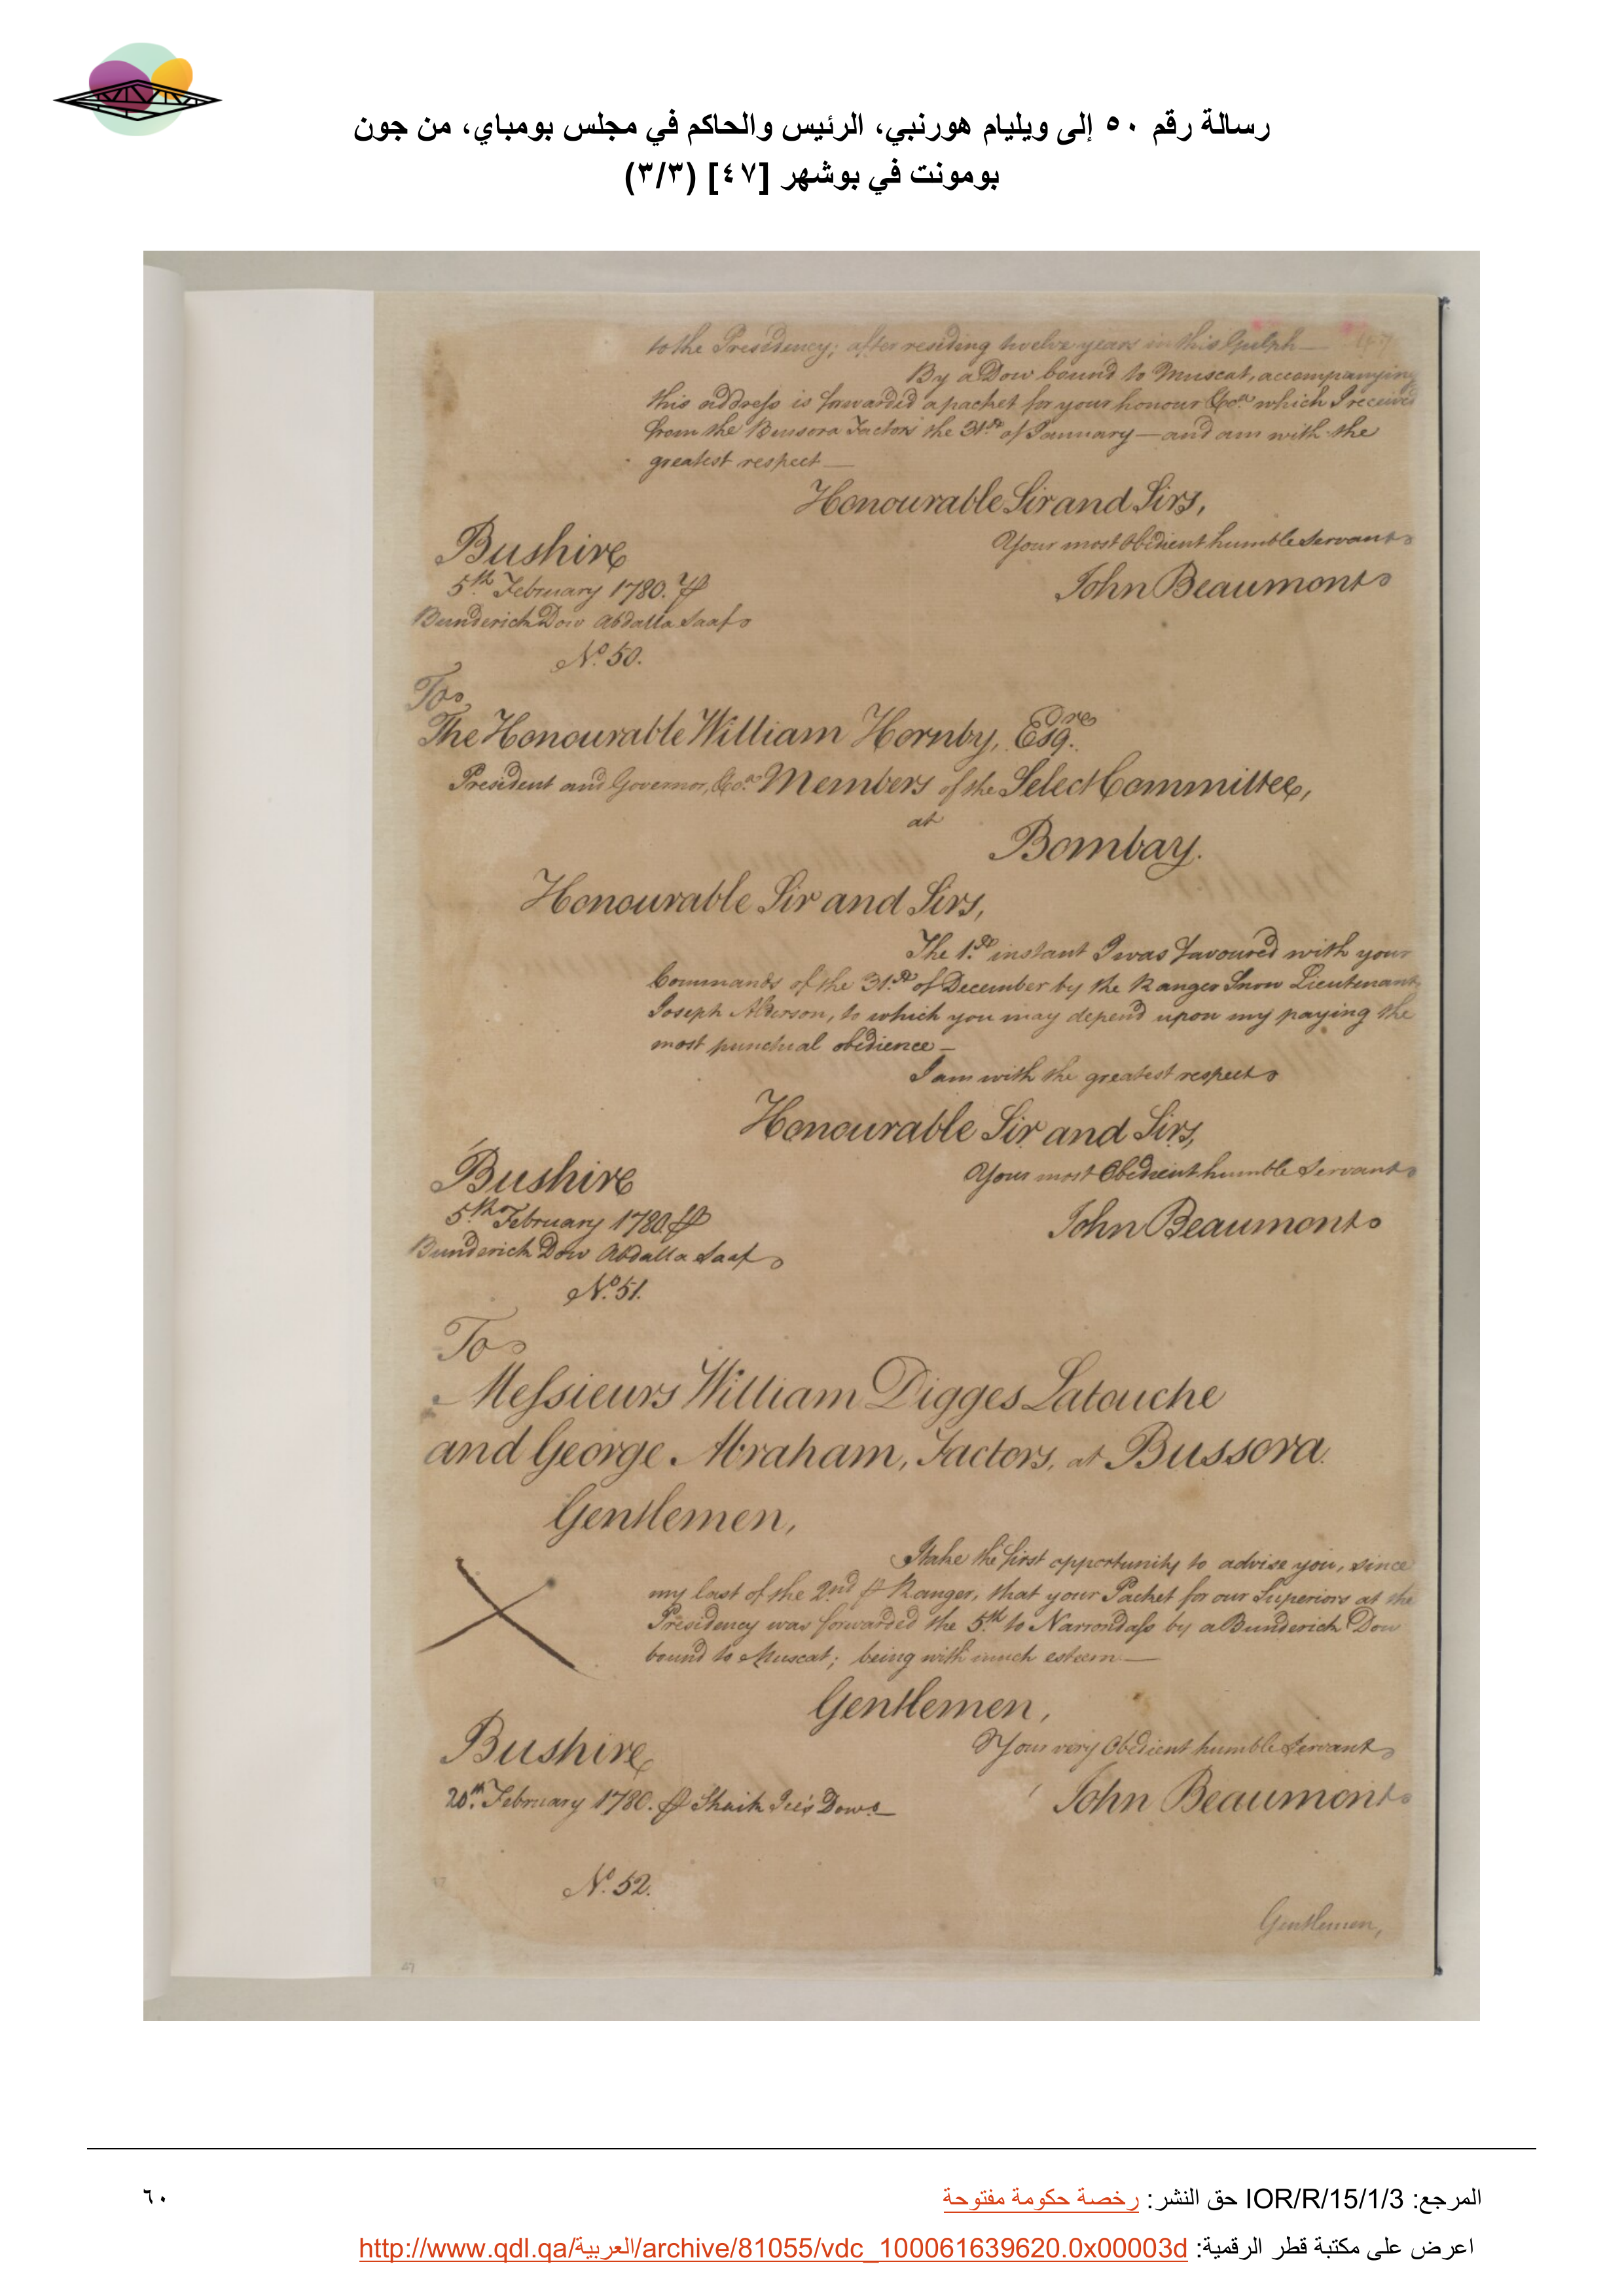 رسالة رقم ٥٠ إلى ويليام هورنبي، الرئيس والحاكم في مجلس بومباي، من جون
بومونت في بوشهر [٤٧] (٣/٣)
to the Presidency; after residing twelve years in this Gulph
By a Dow bound to Muscat, accompanying
this address is forwarded a packet for your honour &Ca. which I received
from the Bussora Factors the 31st of January — and am with the
greatest respect —
Honourable Sir and Sirs,
Your most Obedient humble Servant
Bushire
John Beaumont
5th February 1780. ⅌
Bunderich Dow Abdalla Saaf
No. 50.
To
The Honourable William Hornby, Esqre.
President and Governor, &Ca. Members of the Select Committee,
at
Bombay.
Honourable Sir and Sirs,
The 1st instant I was favoured with your
Commands of the 31st of December by the Ranger Snow Lieutenant
Joseph Alderson, to which you may depend upon my paying the
most punctual obedience —
I am with the greatest respect
Honourable Sir and Sirs,
Your most Obedient humble Servant
Bushire
John Beaumont
5th February 1780. ⅌
Bunderich Dow Abdalla Saaf
No. 51.
To
Messieurs William Digges Latouche
and George Abraham, Factors, at Bussora.
Gentlemen,
I take the first opportunity to advise you, since
my last of the 2nd ⅌ Ranger, that your Packet for our Superiors at the
Presidency was forwarded the 5th to Narrondass by a Bunderich Dow
bound to Muscat; being with much esteem —
Gentlemen,
Your very Obedient humble Servant
Bushire
John Beaumont
20th. February 1780. ⅌ Shaik Dow. —
No. 52.
Gentlemen,
47
المرجع: IOR/R/15/1/3 حق النشر: رخصة حكومة مفتوحة
٦٠
اعرض على مكتبة قطر الرقمية: http://www.qdl.qa/العربية/archive/81055/vdc_100061639620.0x00003d